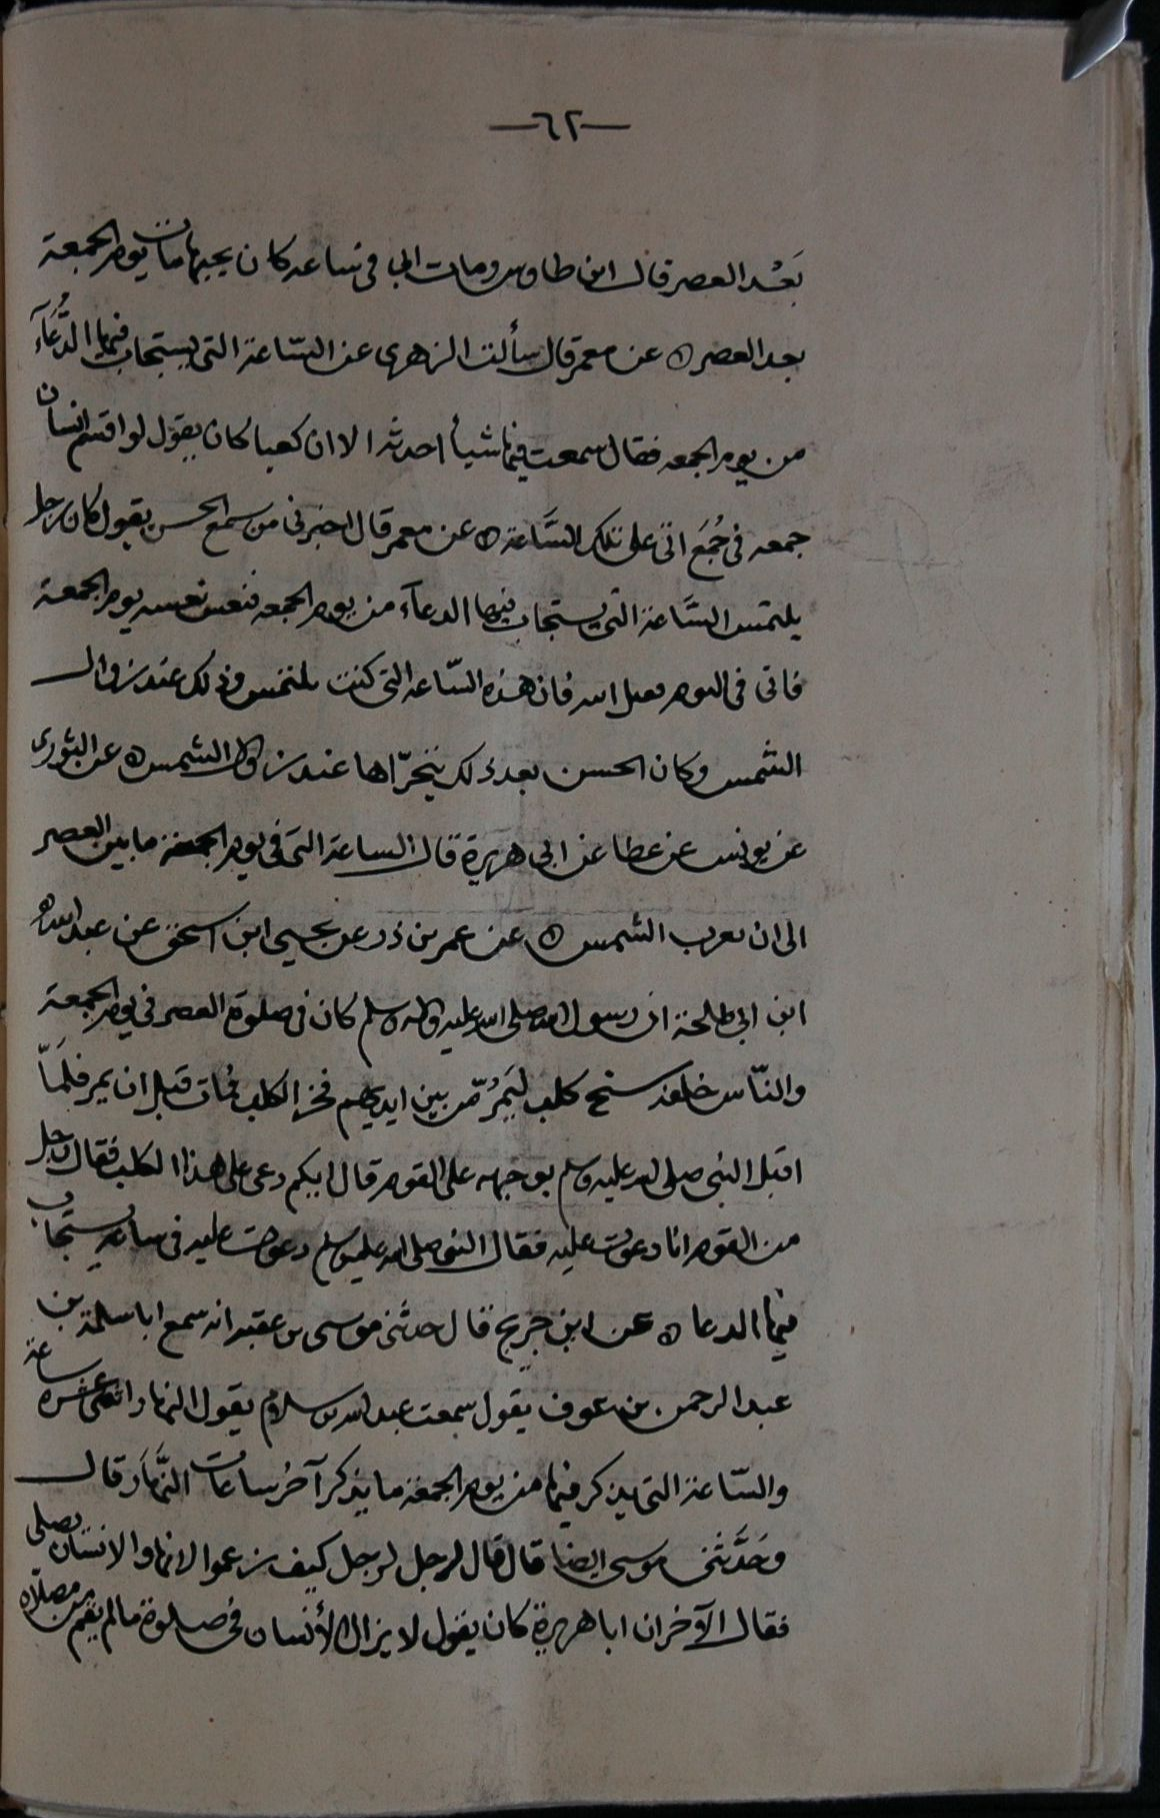 —٦٢—
بَعْد العصر قال ابن طاوس ومات ابى فى ساعه كان يحبها مات يوم الجمعة
بعد العصر ۞ عن معمر قال سألت الزهرى عن السّاعة التى يستجاب فيها الدُّعَآء
من يوم الجمعه فقال سمعت فيها شيأ احدثه الا ان كعبا كان يقول لو اقتسم انسان
جمعه فى جُمَع اتى على تلك السَّاعة ۞ عن معمر قال اخبرنى من سمع الحسن يقول كان رجل
يلتمس السَّاعة التى يستجاب فيها الدعآء من يوم الجمعه فنعس نعسه يوم الجمعة
فاتى فى النوم فقيل له فان هذه السّاعه التى كنت تلتمس وذلك عند زوال
الشمس وكان الحسن بعد ذلك يتحرّاها عند زوال الشمس ۞ عن الثورى
عن يونس عن عطا عن ابى هريرة قال الساعة التى فى يوم الجمعة ما بين العصر
الى ان تغرب الشمس ۞ عن عمر بن ذر عن يحيى ابن اسحق عن عبد الله
ابن ابى طلحة ان رسول الله صلى الله عليه واله وسلم كان فى صلوة العصر فى يوم الجمعة
والنّاس خلفه سنح كلب ليَمُرّ من بين ايديهم فخر الكلب فمات قبل ان يمر فلمَّا
اقبل النبى صلى الله عليه وسلم بوجهه على القوم قال ايكم دعى على هذا الكلب فقال رجل
من القوم انا دعوت عليه فقال النبى صلى الله عليه وسلم دعوت عليه فى ساعة يستجاب
فيها الدعا ۞ عن ابن جريج قال حدثنى موسى بن عقبه انه سمع ابا سلمة بن
عبد الرحمن بن عوف يقول سمعت عبد الله بن سلام يقول النهار اثنى عشره ساعة
والسّاعة التى يذكر فيها من يوم الجمعة ما يذكر آخر ساعات النَّهار قال
وحَدَّثَنى موسى ايضا قال قال رجل لرجل كيف زعموا انها والانسان يصلى
فقال الآخر ان ابا هريرة كان يقول لا يزال الأنسان فى صلوة ما لم يقم من مصلاه